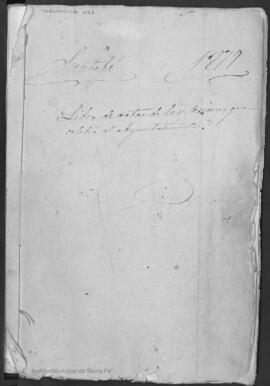 Santafé 1879
Libro de actas de las sesiones que
celebra el Ayuntamiento.
Archivo Municipal de Santa Fe